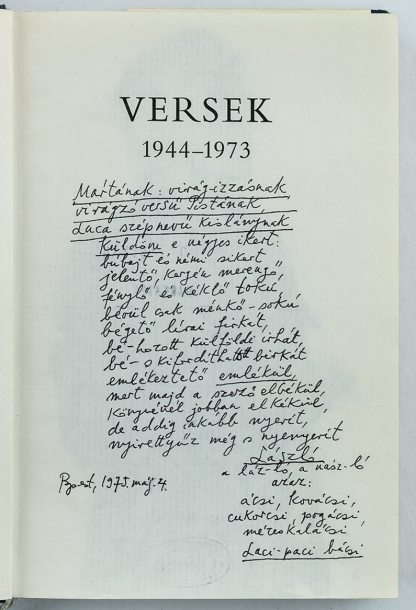 VERSEK
1944–1973
Mártának: virág-izzásnak,
virágzó versű Pistának,
Luca szépnevű kislánynak
küldöm e négyes ikert:
búbajt és némi sikert
jelentő, kergén merengő,
fénylő és kéklő tokú,
belül csak ménkő-sokú
bégető lírai firkát,
bé-hozott külföldi irhát,
bé- s kifordítható birkát
emlékeztető emlékül,
mert majd a szerző elbékül,
könyvével jobban elkékül,
de addig inkább nyerít,
nyirettyűz még s nyenyerít
László
a láz-ló, a nász-ló
azaz:
ácsi, kovácsi,
cukorcsi, pogácsi,
mézeskalácsi
Laci-paci bácsi
Bpest, 1975. máj. 4.